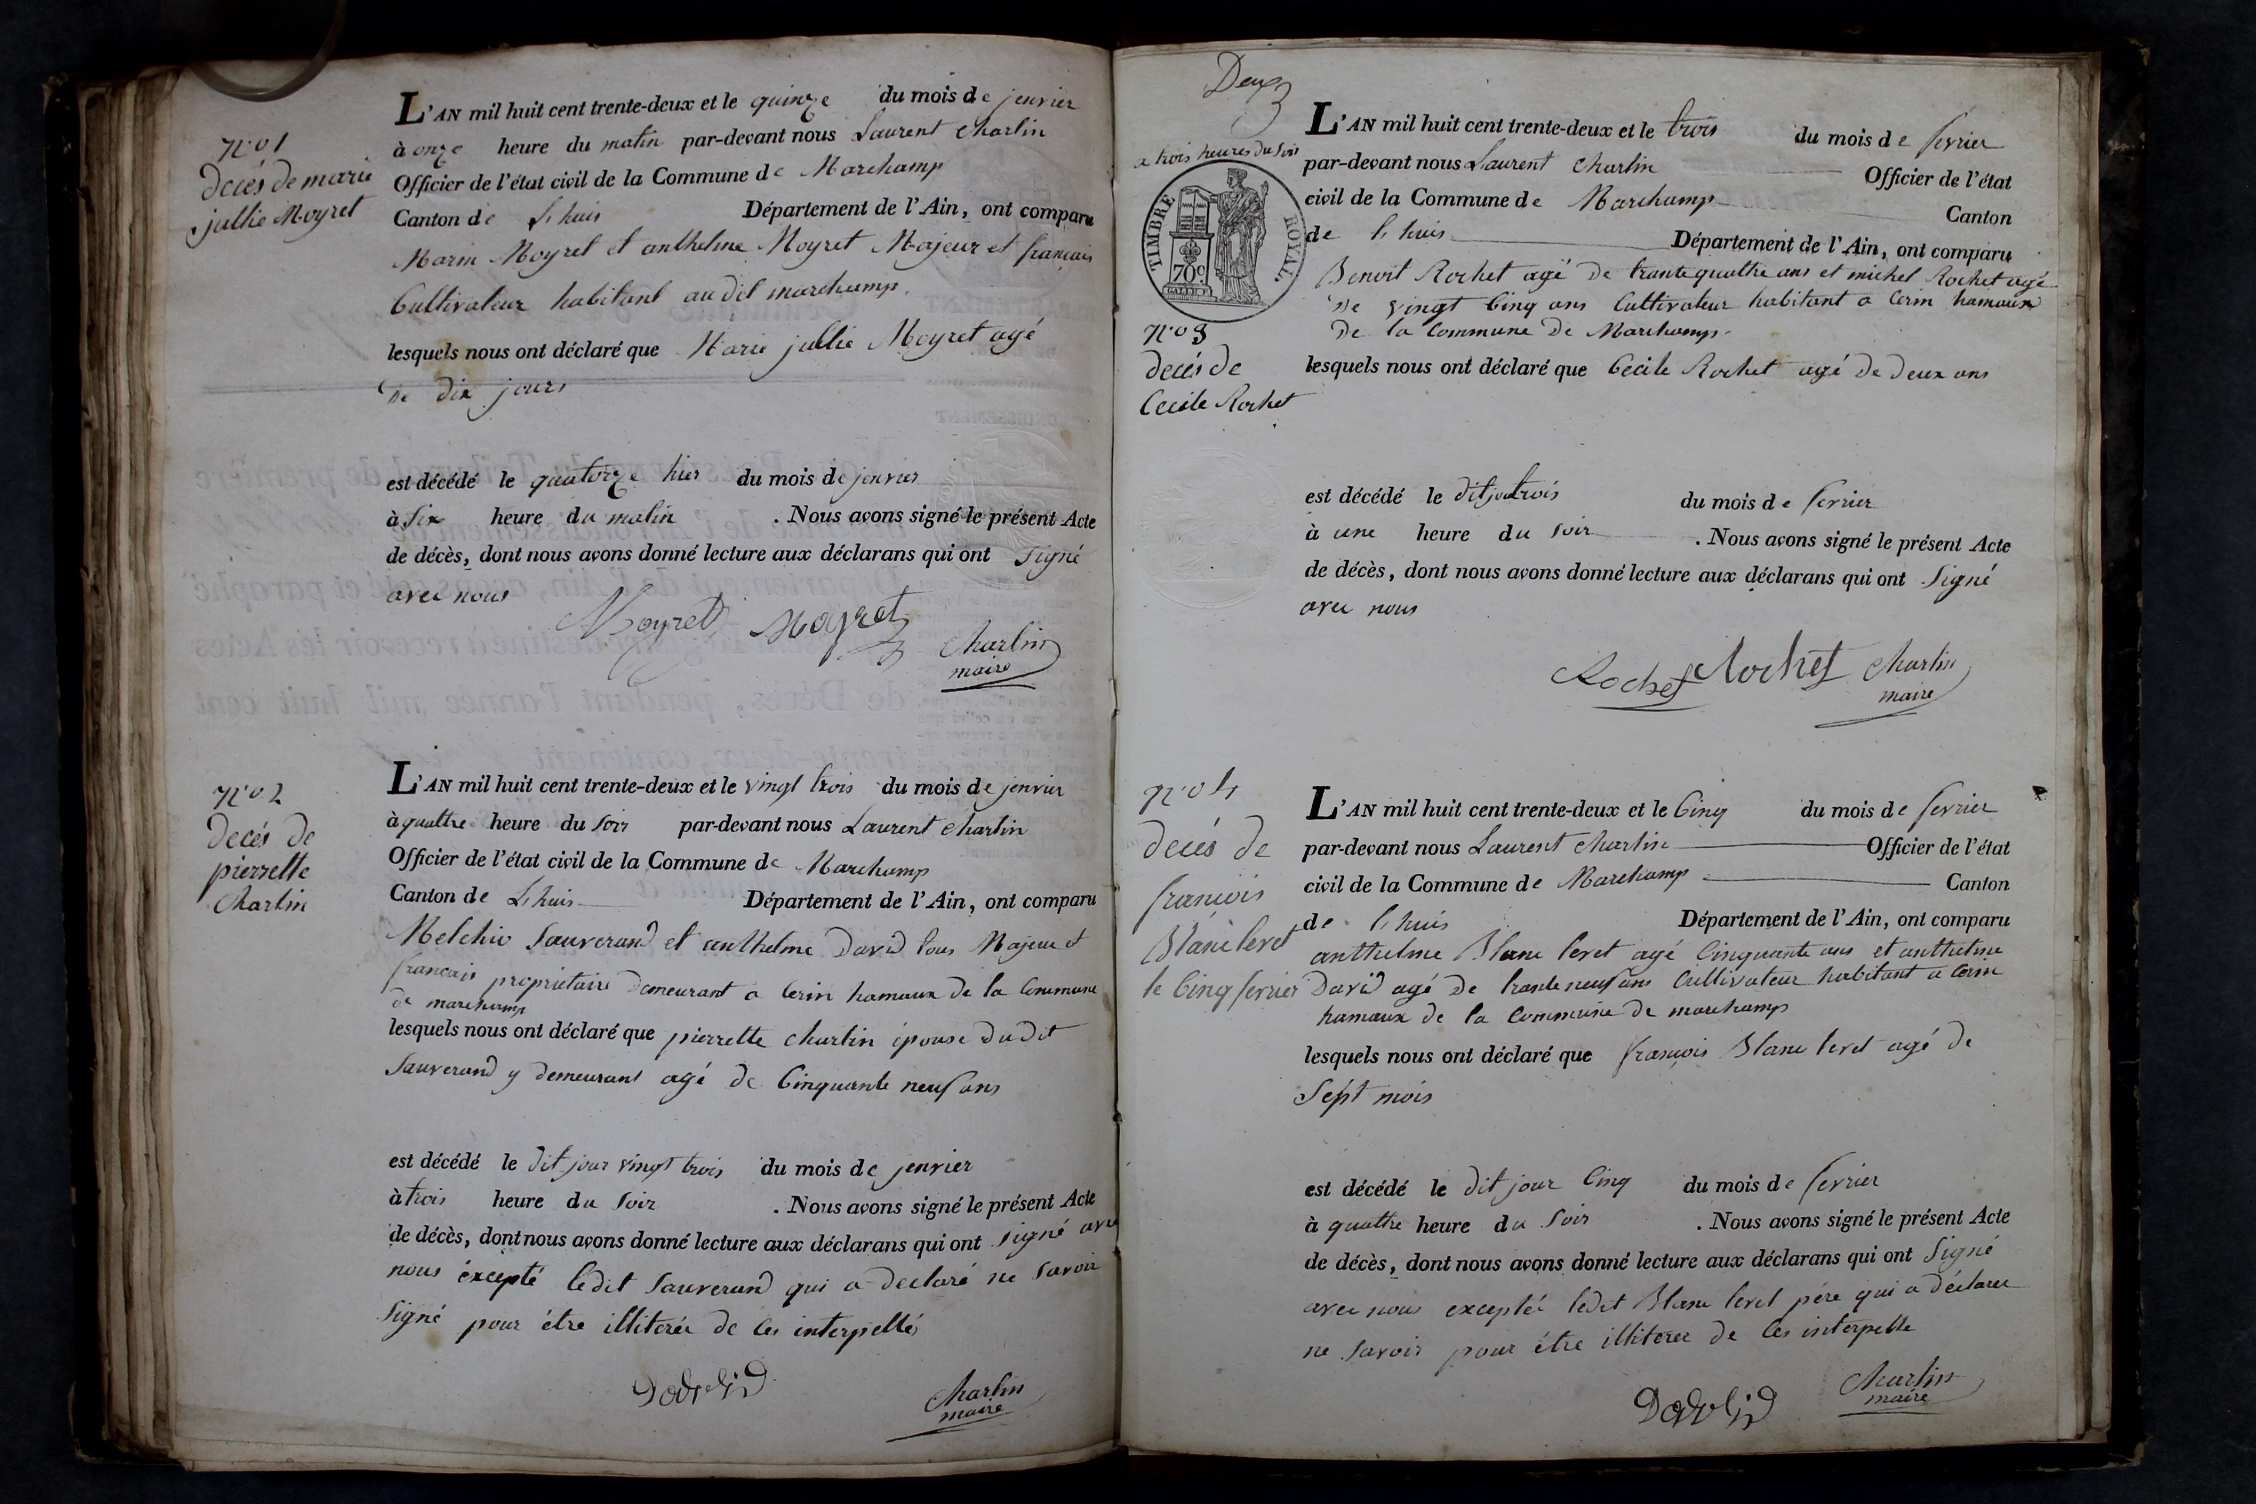 N° 1
décés de marie
jullie Moyret
L'AN mil huit cent trente-deux et le quinze du mois de jenvier
à onze heure du matin par-devant nous Laurent Charlin
Officier de l'état civil de la Commune de Marchamp
Canton de Lhuis Département de l'Ain, ont comparu
Marin Moyret et anthelme Moyret Majeur et francais
Cultivateur habitant au dit marchamp.
lesquels nous ont déclaré que Marie jullie Moyret agé
De dix jours
est décédé le quatorze hier du mois de jenvier
à Six heure du matin . Nous avons signé le présent Acte
de décès, dont nous avons donné lecture aux déclarans qui ont Signé
avec nous
Moyret Moyret Charlin
maire
N° 2
Decés de
pierrette
Charlin
L'AN mil huit cent trente-deux et le vingt trois du mois de jenvier
à quattre heure du Soir par-devant nous Laurent Charlin
Officier de l'état civil de la Commune de Marchamp
Canton de Lhuis Département de l'Ain, ont comparu
Melchio Sauverand et anthelme David tous Majeur et
francais proprietaire demeurant a Cerin hamaux de la Commune
de marchamp
lesquels nous ont déclaré que pierrette Charlin épouse Dudit
Sauverand y demeurant agé de Cinquante neuf ans
est décédé le dit jour vingt trois du mois de jenvier
à trois heure du Soir . Nous avons signé le présent Acte
de décès, dont nous avons donné lecture aux déclarans qui ont Signé avec
nous éxcepté ledit Sauverand qui a declaré ne Savoir
Signé pour étre illiterée de Ces interpellés
David Charlin
maire
Deux
a trois heures du Soir
TIMBRE ROYAL
70c
N° 3
decés de
Cecile Rochet
L'AN mil huit cent trente-deux et le trois du mois de fevrier
par-devant nous Laurent Charlin Officier de l'état
civil de la Commune de Marchamp Canton
de Lhuis Département de l'Ain, ont comparu
Benoit Rochet agé De trante quattre ans et michel Rochet agé
De vingt Cinq ans Cultivateur habitant a Cerin hamaux
De la Commune De Marchamp.
lesquels nous ont déclaré que Cecile Rochet agé De Deux ans
est décédé le dit jour trois du mois de fevrier
à une heure du Soir . Nous avons signé le présent Acte
de décès, dont nous avons donné lecture aux déclarans qui ont Signé
avec nous
Rochet Rochet Charlin
maire
N° 4
decés de
françois
Blanc levet
le Cinq fevrier
L'AN mil huit cent trente-deux et le Cinq du mois de fevrier
par-devant nous Laurent Charlin Officier de l'état
civil de la Commune de Marchamp Canton
de Lhuis Département de l'Ain, ont comparu
anthelme Blanc levet agé Cinquante ans et anthelme
David agé De trante neuf ans Cultivateur habitant a Cerin
hamaux de la Commune de marchamp
lesquels nous ont déclaré que françois Blanc levet agé De
Sept mois
est décédé le dit jour Cinq du mois de fevrier
à quattre heure du Soir . Nous avons signé le présent Acte
de décès, dont nous avons donné lecture aux déclarans qui ont Signé
avec nous exceptéé ledit Blanc levet pére qui a déclarer
ne Savoir pour étre illiterer de Ces interpelle
David Charlin
maire